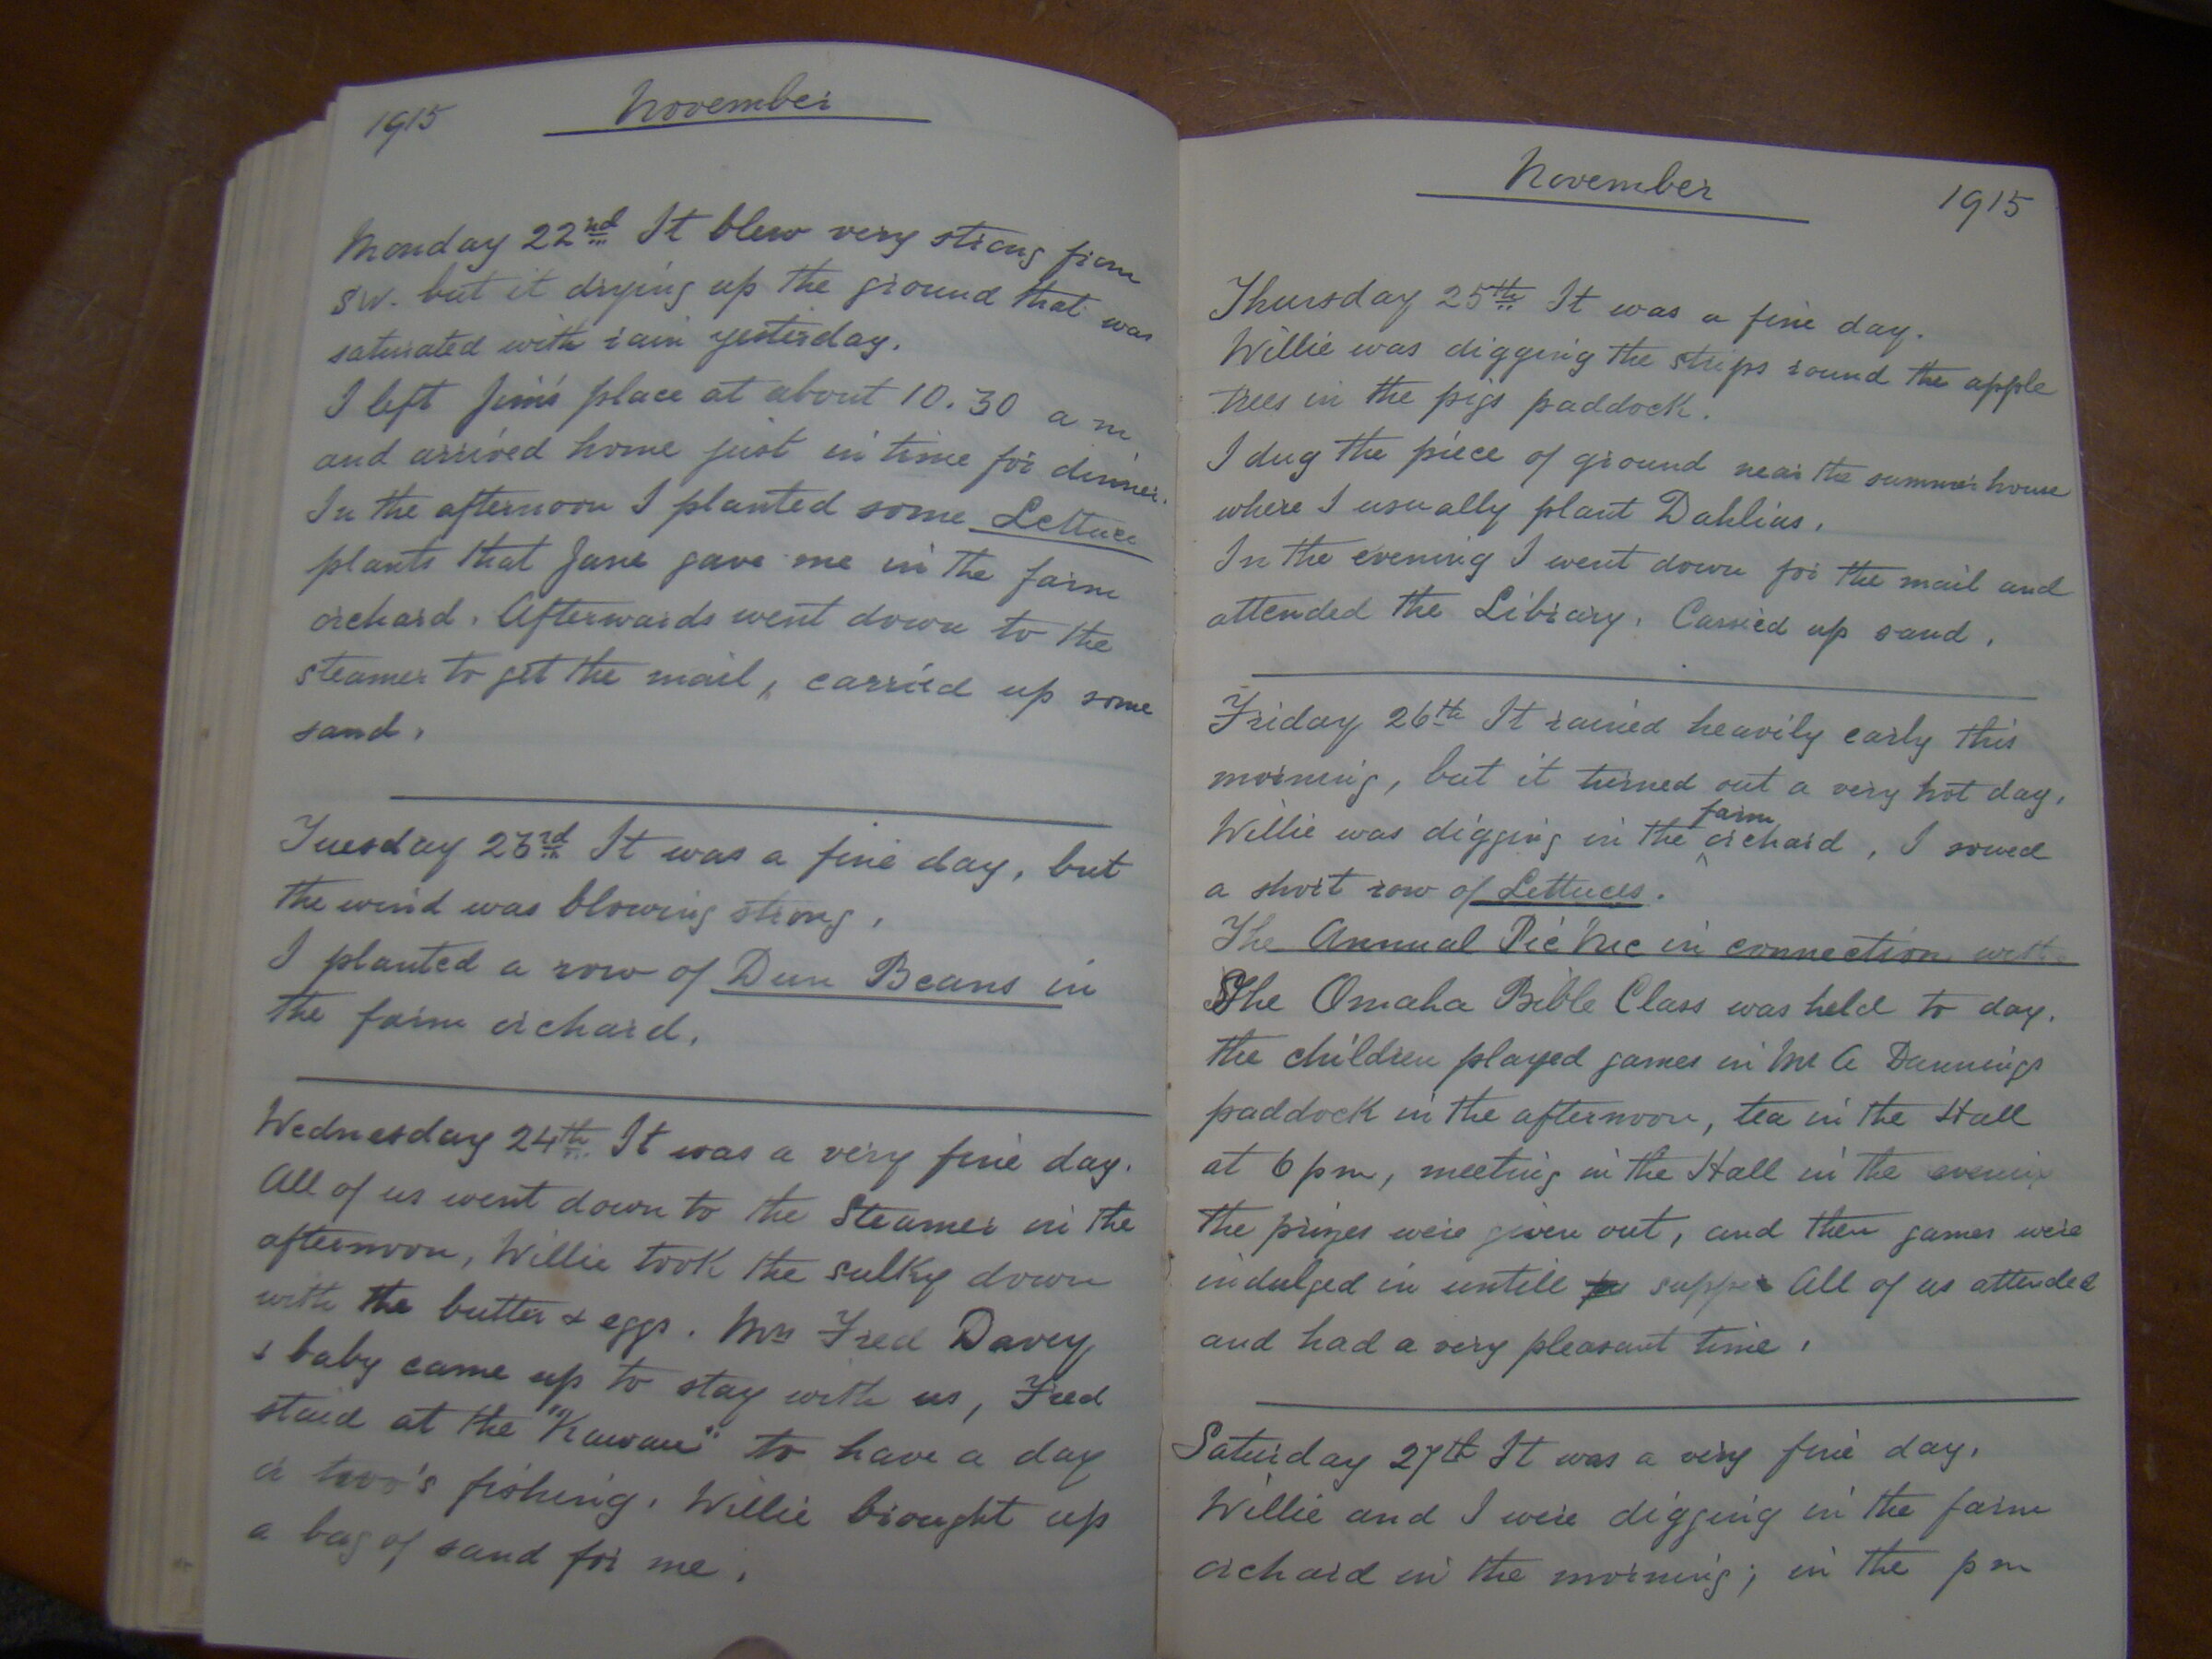 1915 November
Monday 22nd It blew very strong from
SW. but it drying up the ground that was
saturated with rain yesterday.
I left Jim's place at about 10.30 a m
and arrived home just in time for dinner.
In the afternoon I planted some Lettuce
plants that Jane gave me in the farm
orchard. Afterwards went down to the
steamer to get the mail, carried up some
sand.
Tuesday 23rd It was a fine day, but
the wind was blowing strong.
I planted a row of Dun Beans in
the farm orchard.
Wednesday 24th It was a very fine day.
All of us went down to the Steamer in the
afternoon, Willie took the sulky down
with the butter & eggs. Mrs Fred Davey
& baby came up to stay with us, Fred
staid at the "Kawau" to have a day
or two's fishing. Willie brought up
a bag of sand for me.
November 1915
Thursday 25th It was a fine day.
Willie was digging the strips round the apple
trees in the pigs paddock.
I dug the piece of ground near the summer house
where I usually plant Dahlias.
In the evening I went down for the mail and
attended the Library. Carried up sand.
Friday 26th It rained heavily early this
morning, but it turned out a very hot day.
Willie was digging in the farm orchard, I sowed
a short row of Lettuces.
The Annual Pic Nic in connection with
The Omaha Bible Class was held to day.
the children played games in Mr A Dunnings
paddock in the afternoon, tea in the Hall
at 6 pm, meeting in the Hall in the evening
the prizes were given out, and then games were
indulged in untill supper All of us attended
and had a very pleasant time.
Saturday 27th It was a very fine day.
Willie and I were digging in the farm
orchard in the morning; in the p m